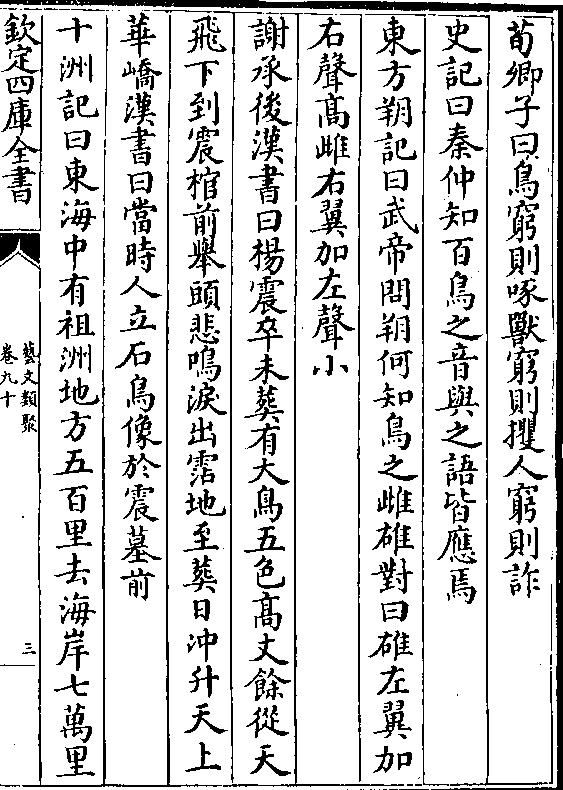 荀卿子曰鳥窮則啄獸窮則攫人窮則詐
史記曰秦仲知百鳥之音與之語皆應焉
東方朔記曰武帝問朔何知鳥之雌雄對曰雄左翼加
右聲高雌右翼加左聲小
謝承後漢書曰楊震卒未葬有大鳥五色高丈餘從天
飛下到震棺前舉頭悲鳴淚出霑地至葬日沖升天上
華嶠漢書曰當時人立石鳥像於震墓前
十洲記曰東海中有祖洲地方五百里去海岸七萬里
欽定四庫全書
藝文類聚
卷九十
三